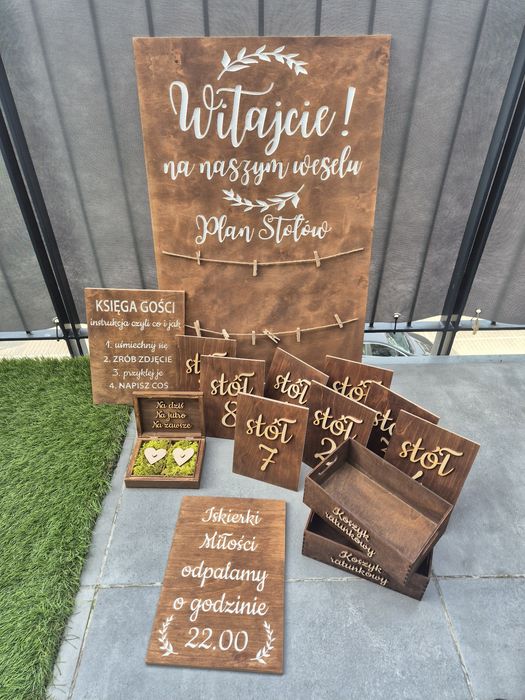 Witajcie!
na naszym weselu
Plan Stołów
KSIĘGA GOŚCI
instrukcja czyli co i jak
1. uśmiechnij się
2. ZRÓB ZDJĘCIE
3. przyklej je
4. NAPISZ COŚ
Na dziś
Na jutro
Na zawsze
stół
stół
8
stół
stół
stół
7
stół
2
stół
Koszyk
ratunkowy
Koszyk
ratunkowy
Iskierki
Miłości
odpalamy
o godzinie
22.00